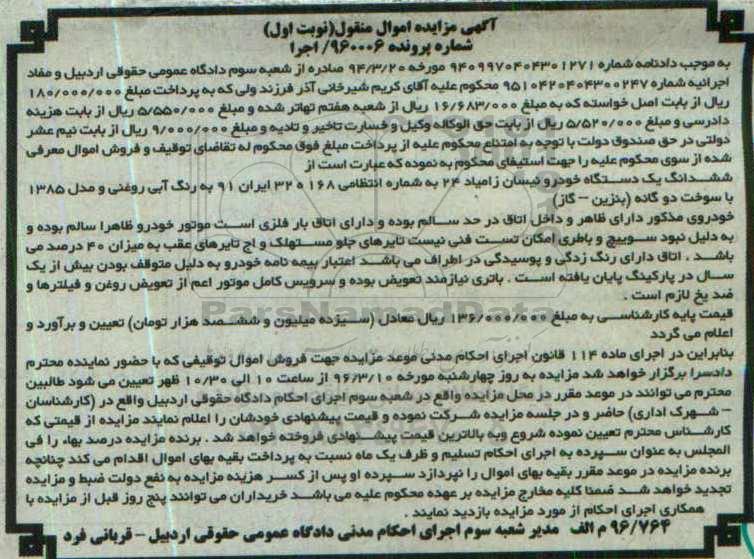 آگهی مزایده اموال منقول(نوبت اول)
شماره پرونده ۹۶۰۰۰۶/ اجرا
به موجب دادنامه شماره ۹۴۰۹۹۷۰۴۰۴۳۰۱۲۷۱ مورخه ۹۴/۳/۲۰ صادره از شعبه سوم دادگاه عمومی حقوقی اردبیل و مفاد
اجرائیه شماره ۹۵۱۰۴۲۰۴۰۴۳۰۰۲۴۷ محکوم علیه آقای کریم شیرخانی آذر فرزند ولی که به پرداخت مبلغ ۱۸۰/۰۰۰/۰۰۰
ریال از بابت اصل خواسته که به مبلغ ۱۶/۶۸۳/۰۰۰ ریال از شعبه هفتم تهاتر شده و مبلغ ۵/۵۵۰/۰۰۰ ریال از بابت هزینه
دادرسی و مبلغ ۵/۵۲۰/۰۰۰ ریال از بابت حق الوکاله وکیل و خسارت تاخیر و تادیه و مبلغ ۹/۰۰۰/۰۰۰ ریال از بابت نیم عشر
دولتی در حق صندوق دولت با توجه به امتناع محکوم علیه از پرداخت مبلغ فوق محکوم له تقاضای توقیف و فروش اموال معرفی
شده از سوی محکوم علیه را جهت استیفای محکوم به نموده که عبارت است از
ششدانگ یک دستگاه خودرو نیسان زامیاد ۲۴ به شماره انتظامی ۱۶۸ ۳۲۰ ایران ۹۱ به رنگ آبی روغنی و مدل ۱۳۸۵
با سوخت دو گانه (بنزین – گاز)
خودروی مذکور دارای ظاهر و داخل اتاق در حد سالم بوده و دارای اتاق بار فلزی است موتور خودرو ظاهرا سالم بوده و
به دلیل نبود سوییچ و باطری امکان تست فنی نیست تایرهای جلو مستهلک و اج تایرهای عقب به میزان ۴۰ درصد می
باشد . اتاق دارای رنگ زدگی و پوسیدگی در اطراف می باشد اعتبار بیمه نامه خودرو به دلیل متوقف بودن بیش از یک
سال در پارکینگ پایان یافته است . باتری نیازمند تعویض بوده و سرویس کامل موتور اعم از تعویض روغن و فیلترها و
ضد یخ لازم است .
قیمت پایه کارشناسی به مبلغ ۱۳۶/۰۰۰/۰۰۰ ریال معادل (سیزده میلیون و ششصد هزار تومان) تعیین و برآورد و
اعلام می گردد
بنابراین در اجرای ماده ۱۱۴ قانون اجرای احکام مدنی موعد مزایده جهت فروش اموال توقیفی که با حضور نماینده محترم
دادسرا برگزار خواهد شد مزایده به روز چهارشنبه مورخه ۹۶/۳/۱۰ از ساعت ۱۰ الی ۱۰/۳۰ ظهر تعیین می شود طالبین
محترم می توانند در موعد مقرر در محل مزایده واقع در شعبه سوم اجرای احکام دادگاه حقوقی اردبیل واقع در (کارشناسان
– شهرک اداری) حاضر و در جلسه مزایده شرکت نموده و قیمت پیشنهادی خودشان را اعلام نمایند مزایده از قیمتی که
کارشناس محترم تعیین نموده شروع وبه بالاترین قیمت پیشنهادی فروخته خواهد شد . برنده مزایده درصد بهاء را فی
المجلس به عنوان سپرده به اجرای احکام تسلیم و ظرف یک ماه نسبت به پرداخت بقیه بهای اموال اقدام می کند چنانچه
برنده مزایده در موعد مقرر بقیه بهای اموال را نپردازد سپرده او پس از کسر هزینه مزایده به نفع دولت ضبط و مزایده
تجدید خواهد شد ضمنا کلیه مخارج مزایده بر عهده محکوم علیه می باشد خریداران می توانند پنج روز قبل از مزایده با
همکاری اجرای احکام از مورد مزایده بازدید نمایند .
۹۶/۷۶۴ م الف مدیر شعبه سوم اجرای احکام مدنی دادگاه عمومی حقوقی اردبیل – قربانی فرد
ParsNamadData